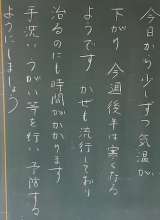 今日から少しずつ気温が
下がり 今週後半は寒くなる
ようです かぜも流行しており
治るのにも時間がかかります
手洗い うがい等を行い 予防する
ようにしましょう